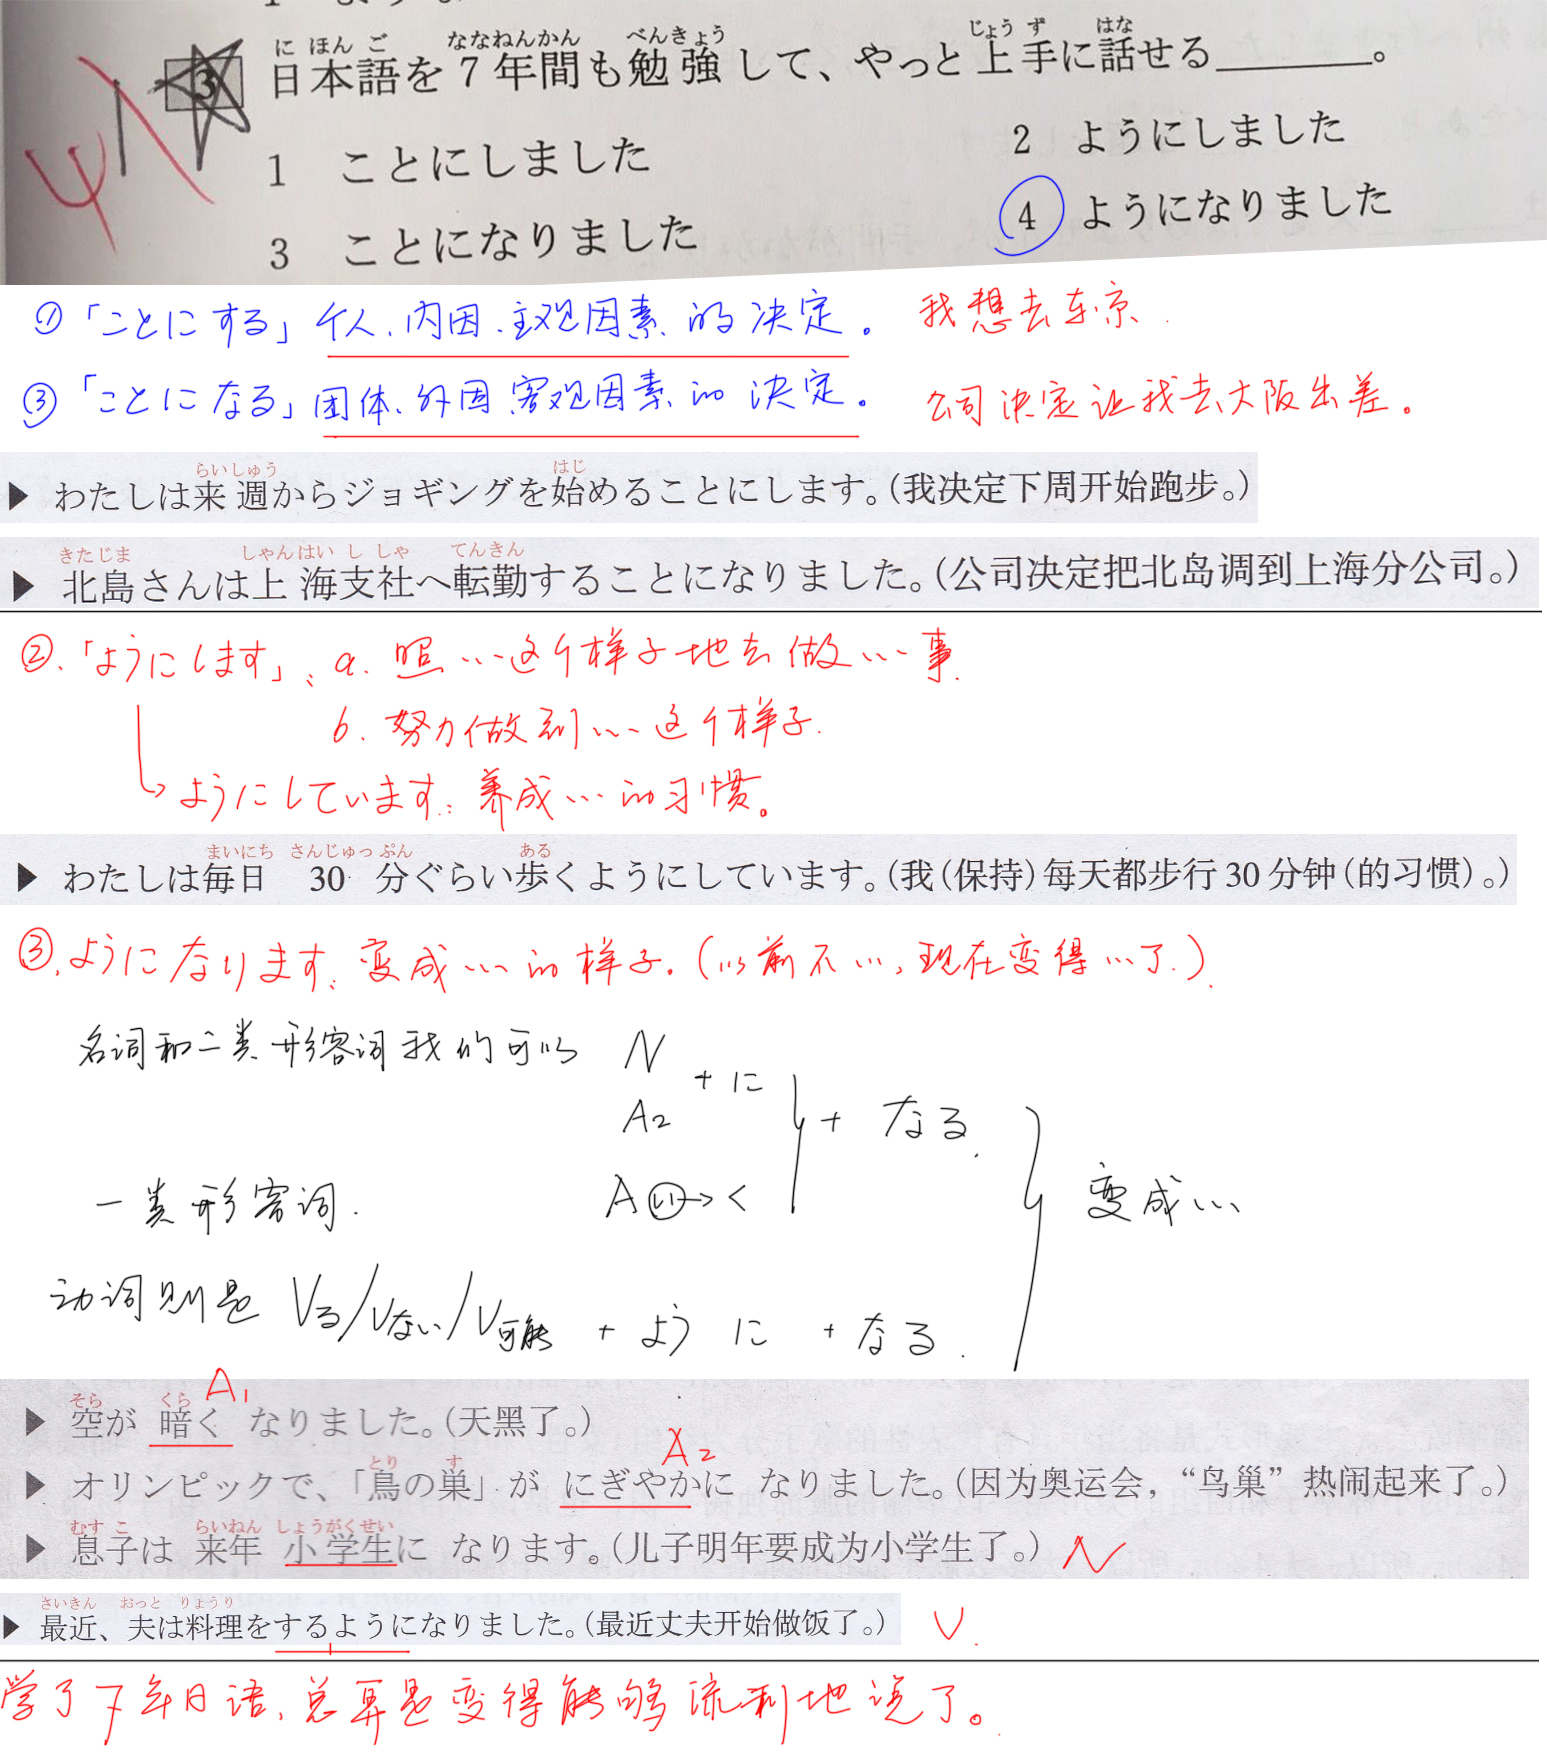 3 日本語を7年間も勉強して、やっと上手に話せる______。
にほんご ななねんかん べんきょう じょうず はな
1 ことにしました
2 ようにしました
3 ことになりました
4 ようになりました
4
①「ことにする」个人、内因、主观因素的决定。 我想去东京.
③「ことになる」团体、外因、客观因素的决定。 公司决定让我去大阪出差。
らいしゅう はじ
▶ わたしは来週からジョギングを始めることにします。(我决定下周开始跑步。)
きたじま しゃんはいししゃ てんきん
▶ 北島さんは上海支社へ転勤することになりました。(公司决定把北岛调到上海分公司。)
②.「ようにします」、a. 照…这个样子地去做…事.
b. 努力做到…这个样子.
ようにしています:养成…的习惯。
まいにち さんじゅっぷん ある
▶ わたしは毎日30分ぐらい歩くようにしています。(我(保持)每天都步行30分钟(的习惯)。)
③.ようになります:变成…的样子.(以前不…,现在变得…了.)
名词和二类形容词我们可以 N A2 +に + なる.
一类形容词. Aい→く 变成…
动词则是 Vる/Vない/V可能 + ように + なる.
そら くら A1
▶ 空が 暗く なりました。(天黑了。)
とり す A2
▶ オリンピックで、「鳥の巣」が にぎやかに なりました。(因为奥运会,“鸟巢”热闹起来了。)
むすこ らいねん しょうがくせい
▶ 息子は 来年 小学生に なります。(儿子明年要成为小学生了。) N
さいきん おっと りょうり
▶ 最近、夫は料理をするようになりました。(最近丈夫开始做饭了。) V.
学了7年日语,总算是变得能够流利地说了。